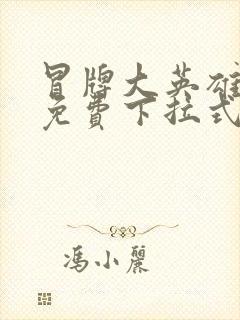 冒牌大英雄
免費下拉式
馮小麗